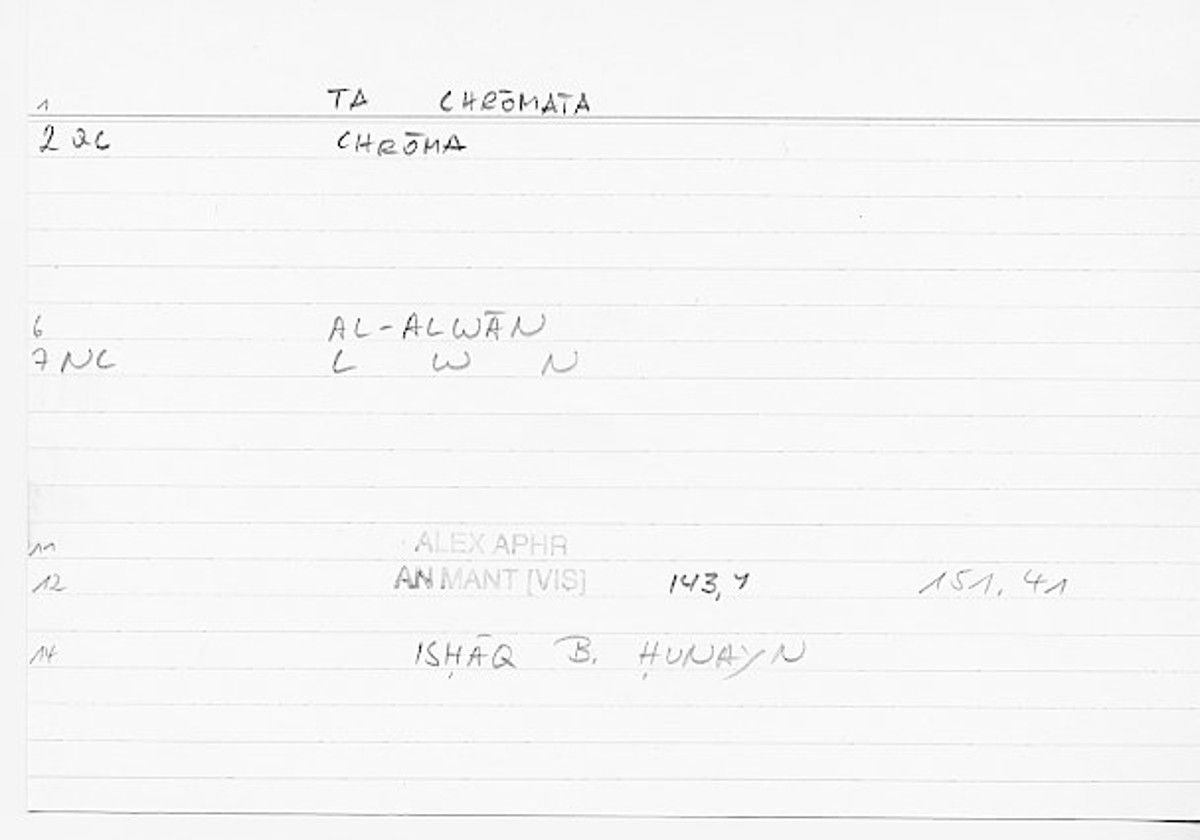 1 TA CHRŌMATA
2 QC CHRŌMA
6 AL-ALWĀN
7 NC L W N
11 ALEX APHR
12 AN MANT [VIS] 143,7 151.41
14 ISḤĀQ B. ḤUNAYN